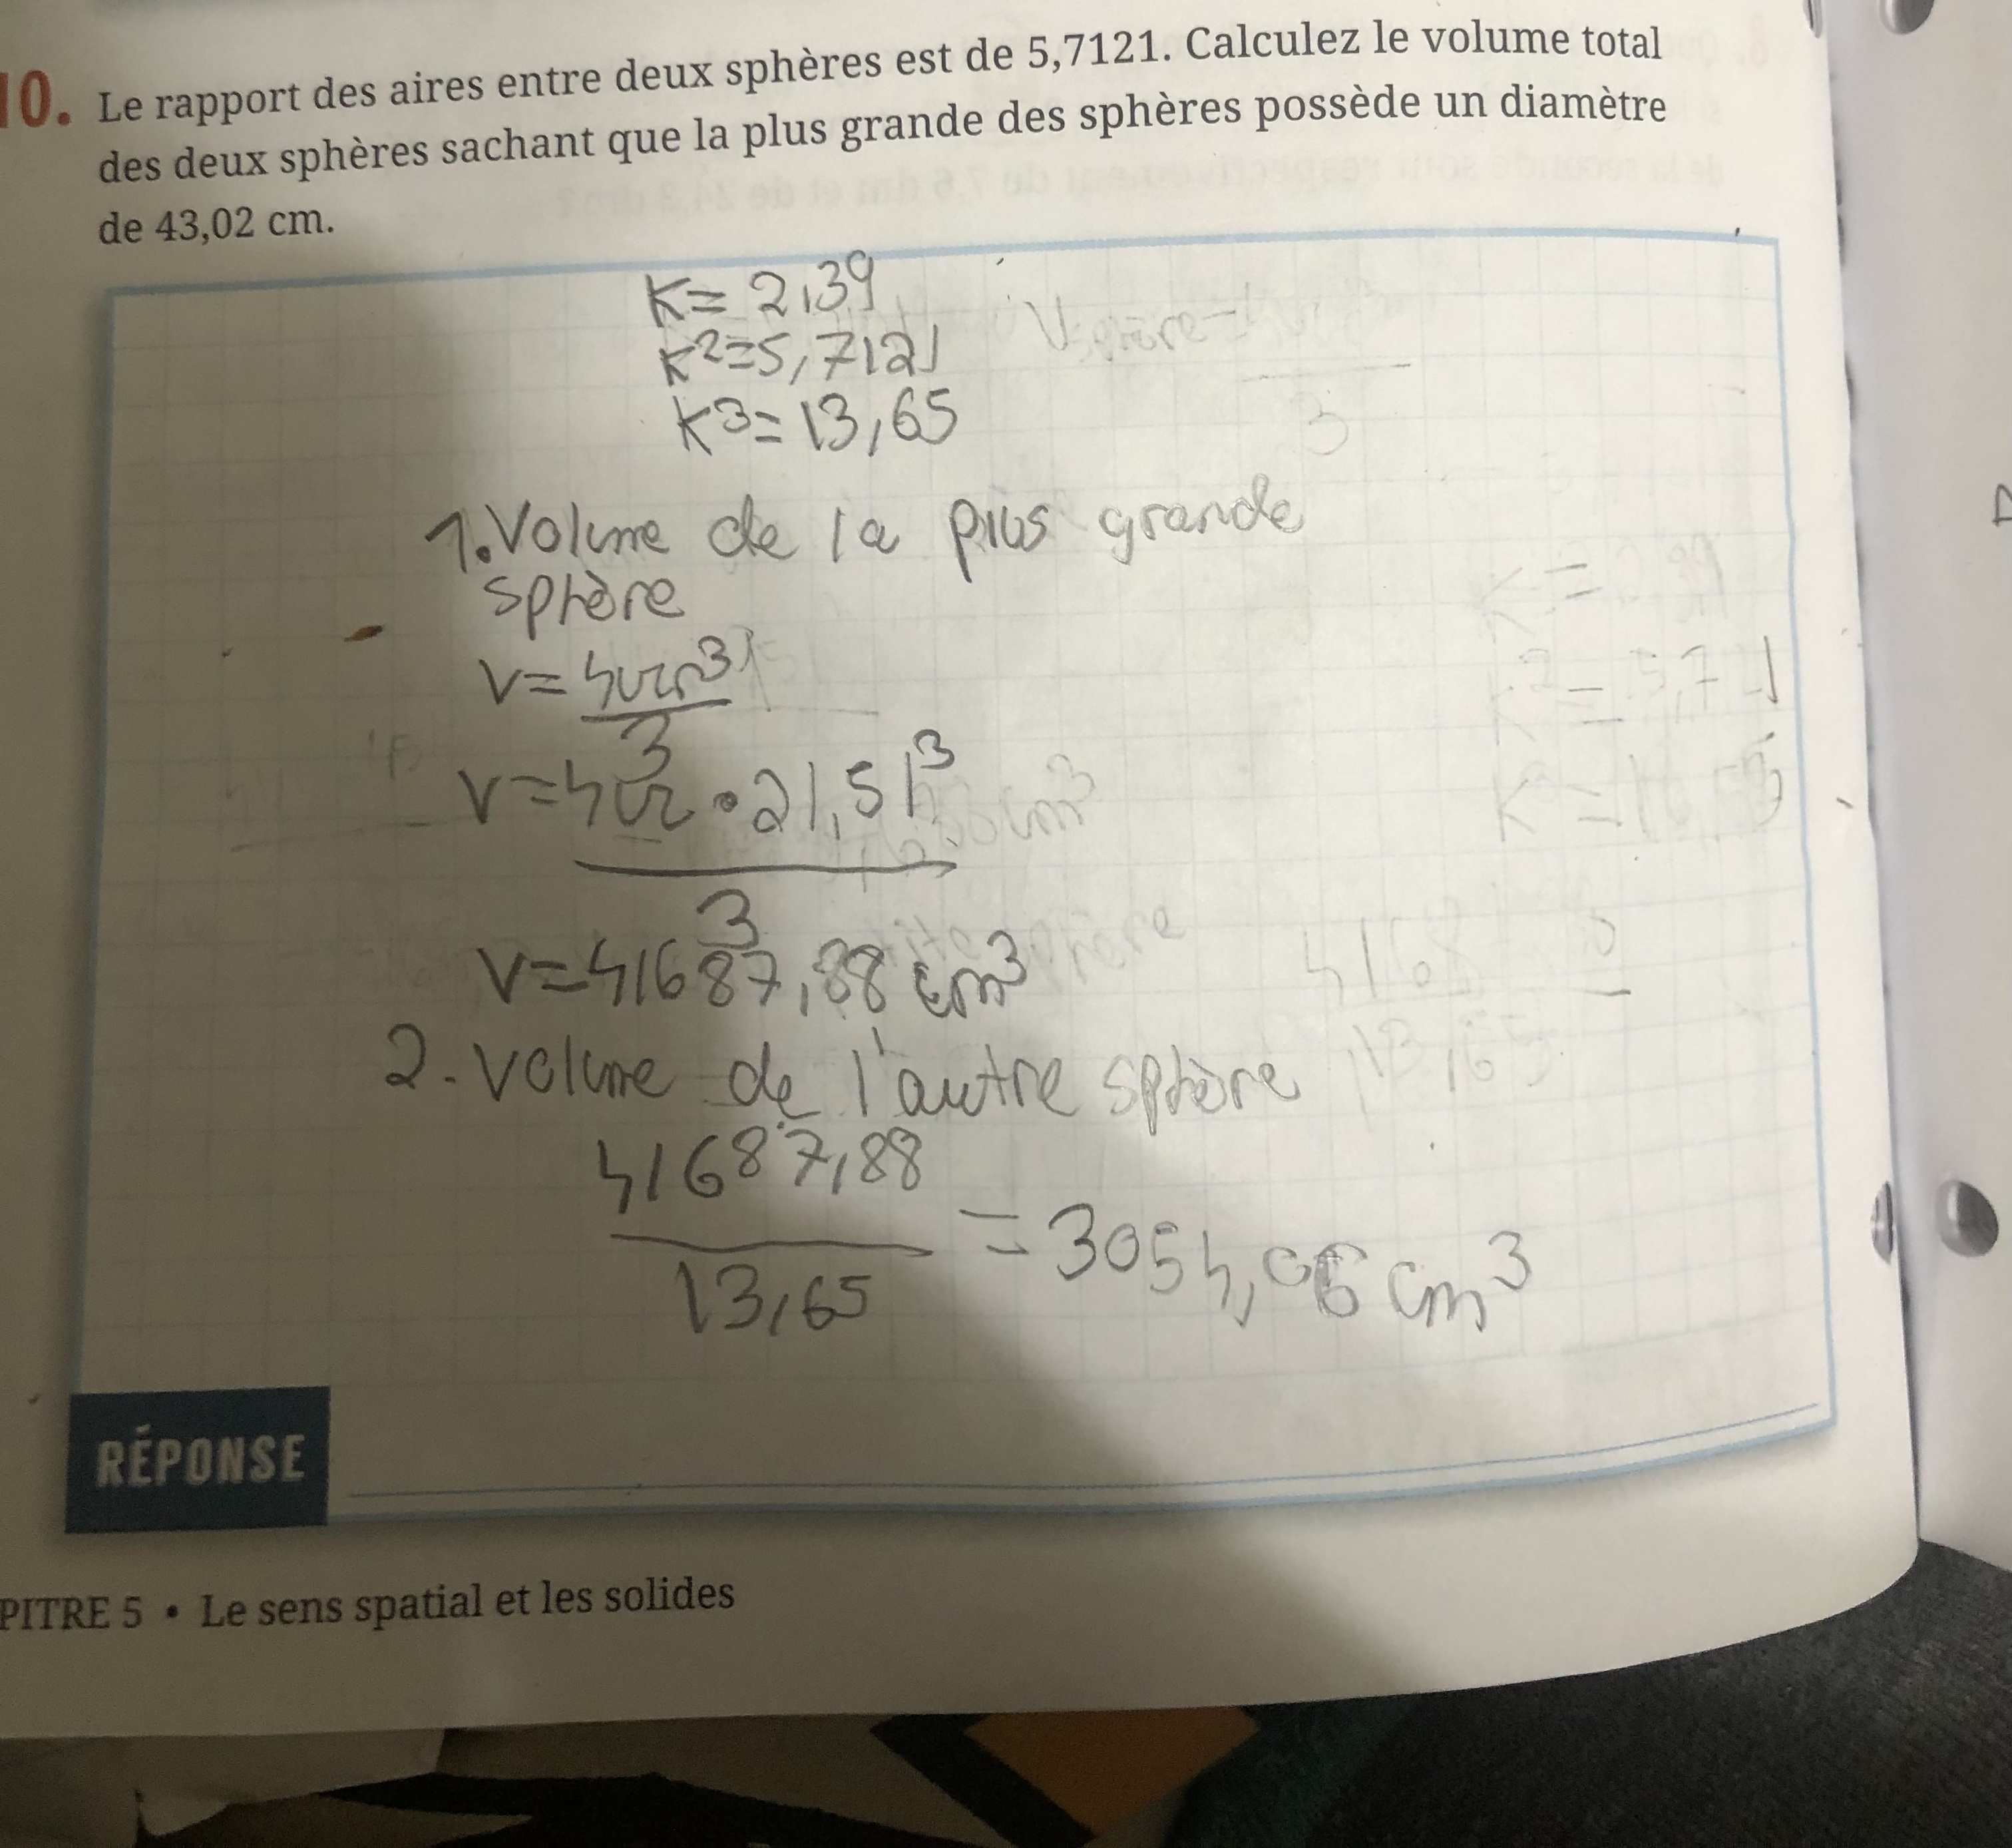 10. Le rapport des aires entre deux sphères est de 5,7121. Calculez le volume total
des deux sphères sachant que la plus grande des sphères possède un diamètre
de 43,02 cm.
K = 2,39
K² = 5,7121
K³ = 13,65
1. Volume de la plus grande
sphère
V = 4πr³
3
V = 4π • 21,51³
3
V = 41687,88 cm³
2. Volume de l'autre sphère
41687,88
13,65
= 3054,06 cm³
RÉPONSE
PITRE 5 • Le sens spatial et les solides